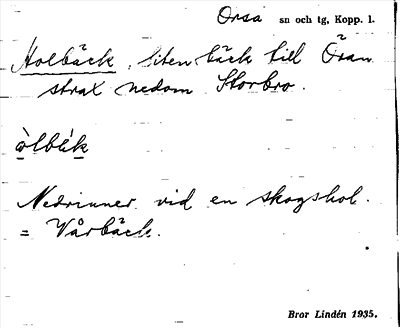 Orsa sn och tg, Kopp. l.
Holbäck, liten bäck till Öran
strax nedom Storbro.
òlbä́k
Nedrinner vid en skogshol.
= Vårbäck.
Bror Lindén 1935.